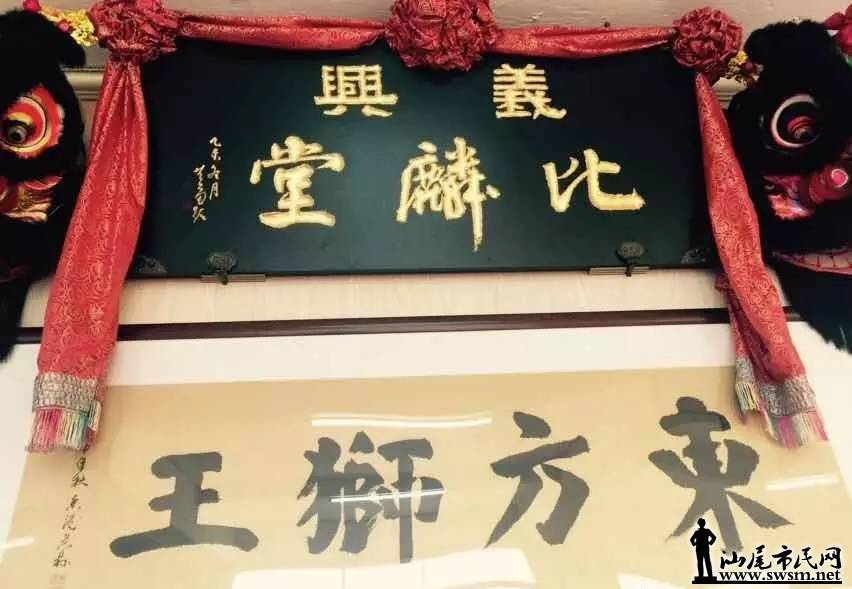 義興
比麟堂
乙未冬月
東方獅王
汕尾市民网
www.swsm.net